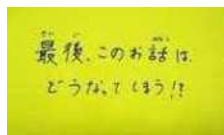 最後、このお話は、
どうなってしまう!?